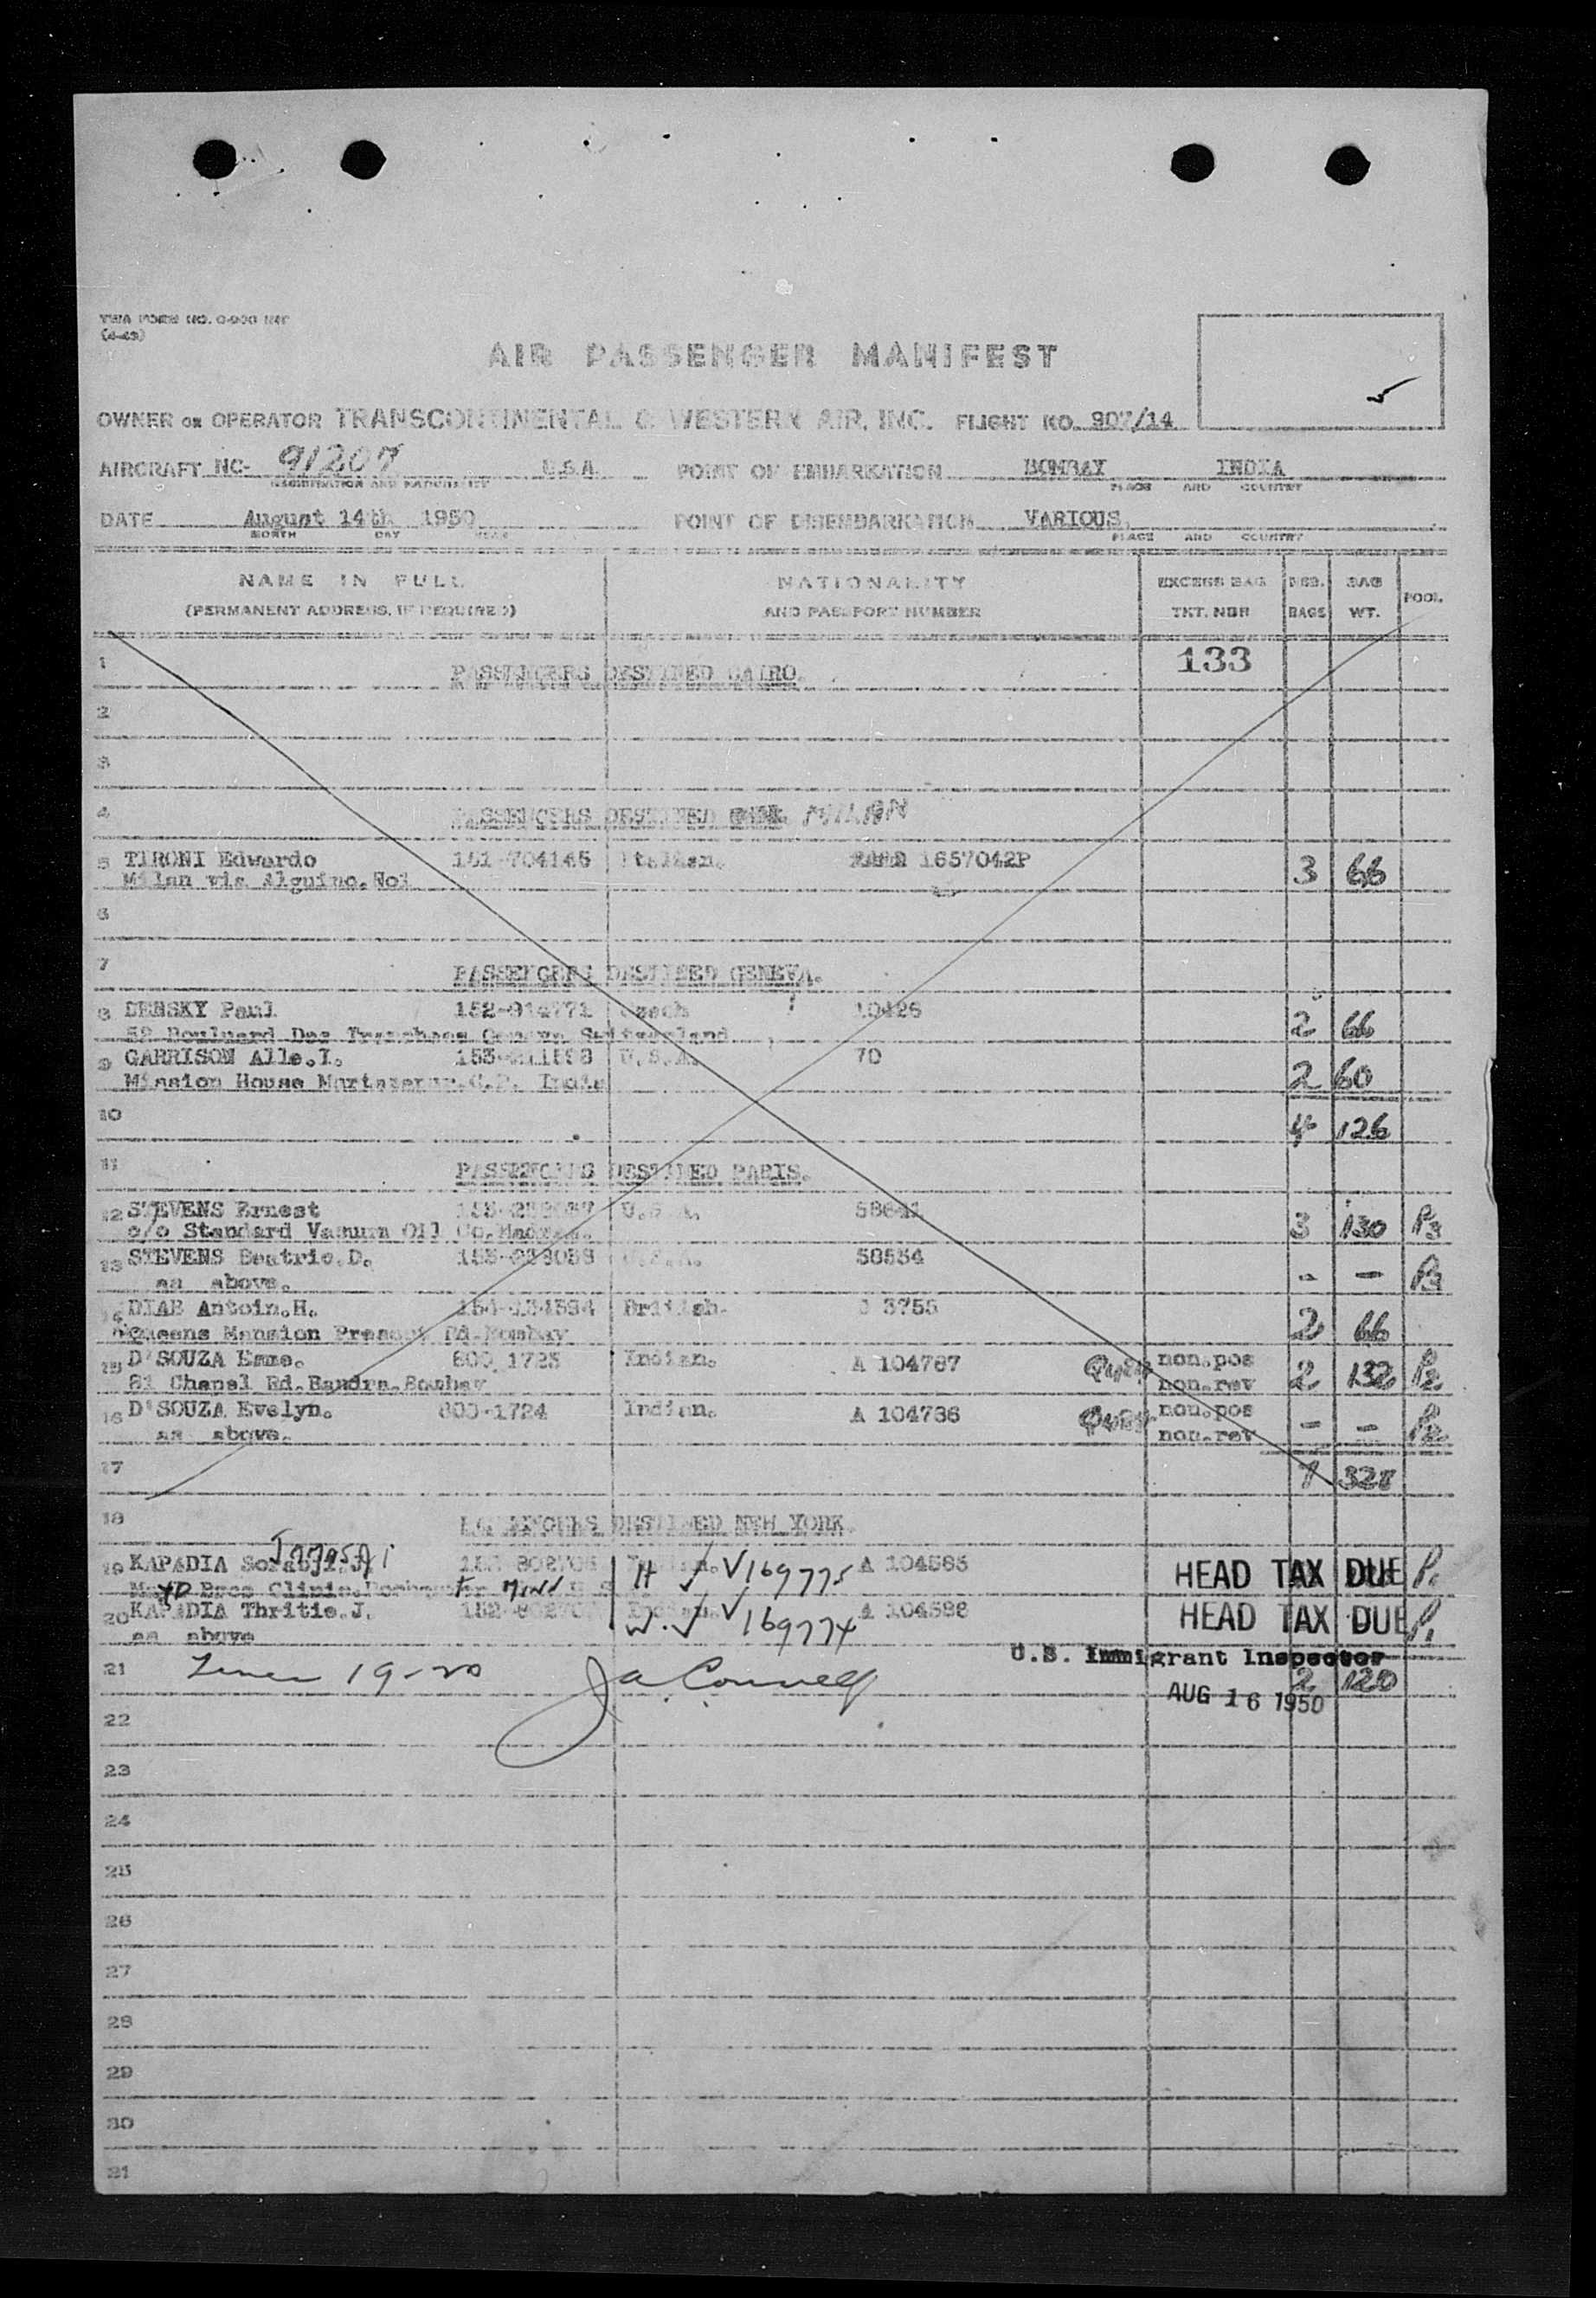 TWA FORM NO.
AIR PASSENGER MANIFEST
OWNER OR OPERATOR TRANSCONTINENTAL & WESTERN AIR, INC. FLIGHT NO. 907/14
AIRCRAFT NC- 91207 U.S.A. POINT OF EMBARKATION BOMBAY INDIA
REGISTRATION AND NATIONALITY PLACE AND COUNTRY
DATE August 14th 1950 POINT OF DISEMBARKATION VARIOUS.
MONTH DAY YEAR PLACE AND COUNTRY
NAME IN FULL NATIONALITY EXCESS BAG NBR. BAG POOL
(PERMANENT ADDRESS, IF REQUIRED) AND PASSPORT NUMBER TKT. NBR BAGS WT.
133
1 PASSENGERS DESTINED CAIRO.
2
3
4 PASSENGERS DESTINED MILAN
5 TIRONI Edwardo 151-704145 Italian. 1657042P 3 66
Milan via
6
7 PASSENGERS DESTINED GENEVA.
8 DENSKY Paul 152-914771 Czech 10426 2 66
52 Geneva Switzerland
9 GARRISON Alle.I. U.S.A. 70 2 60
Mission House C.P. India
10 4 126
11 PASSENGERS DESTINED PARIS.
12 STEVENS Ernest U.S.A. 3 130 P3
c/o Standard Vacuum Oil Co.
13 STEVENS Beatric.D. U.S.A. 58554 - - P3
as above.
14 DIAB Antoin.H. British. 3755 2 66
Queens Mansion Rd.Bombay
15 D'SOUZA 800 1725 Indian. A 104787 non.pos 2 132 P2
81 Chapel Rd.Bandra.Bombay non.rev
16 D'SOUZA Evelyn. 800-1724 Indian. A 104786 non.pos - - P2
as above. non.rev
17 7 328
18 PASSENGERS DESTINED NEW YORK.
19 KAPADIA H V 169775 A 104585 HEAD TAX DUE P1
Mayo Bros Clinic.
20 KAPADIA Thritie.J. W V 169774 A 104586 HEAD TAX DUE P1
as above
U.S. Immigrant Inspector
21 Lines 19-20 2 120
AUG 16 1950
22
23
24
25
26
27
28
29
30
31